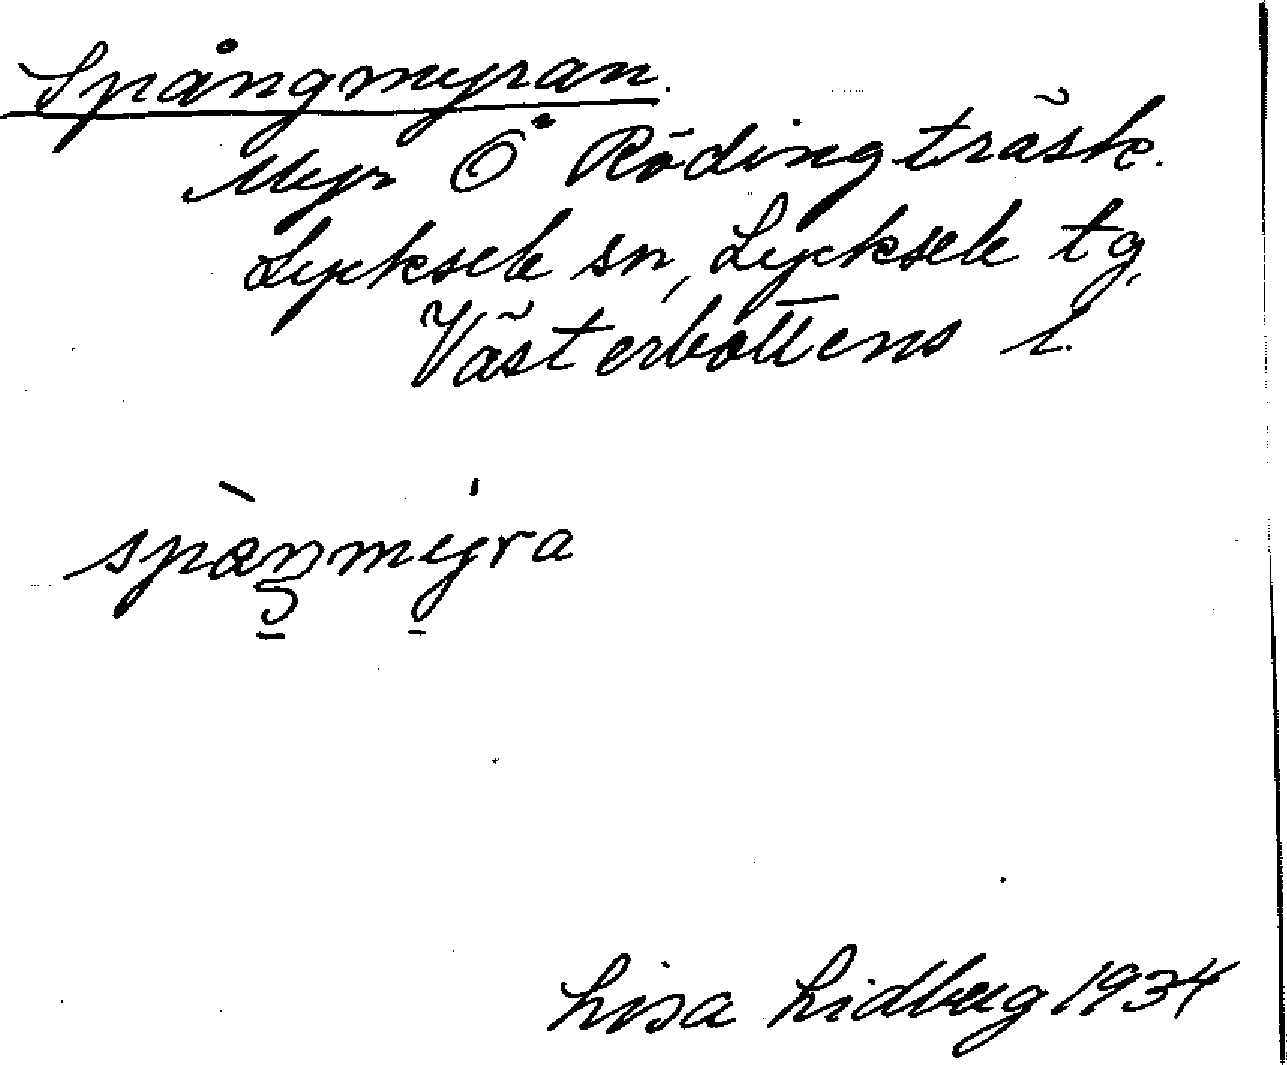 Spångmyran.
Myr Ö Rödingträsk.
Lycksele sn, Lycksele tg,
Västerbottens l.
Lisa Lidberg 1934